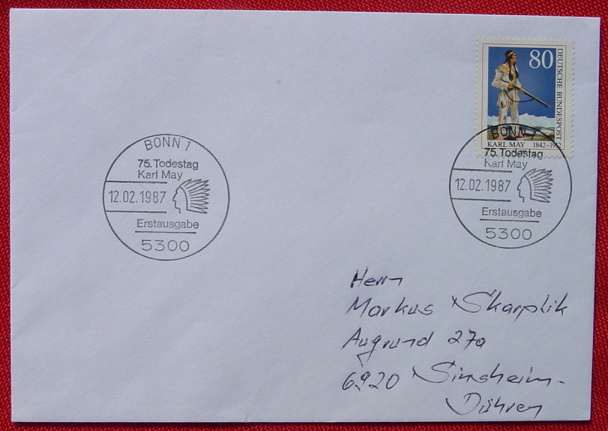 80
DEUTSCHE BUNDESPOST
KARL MAY 1842-1912
BONN 1
75. Todestag
Karl May
12.02.1987
Erstausgabe
5300
BONN 1
75. Todestag
Karl May
12.02.1987
Erstausgabe
5300
Herrn
Markus Skarplik
Augrund 27a
6920 Sinsheim-
Dühren